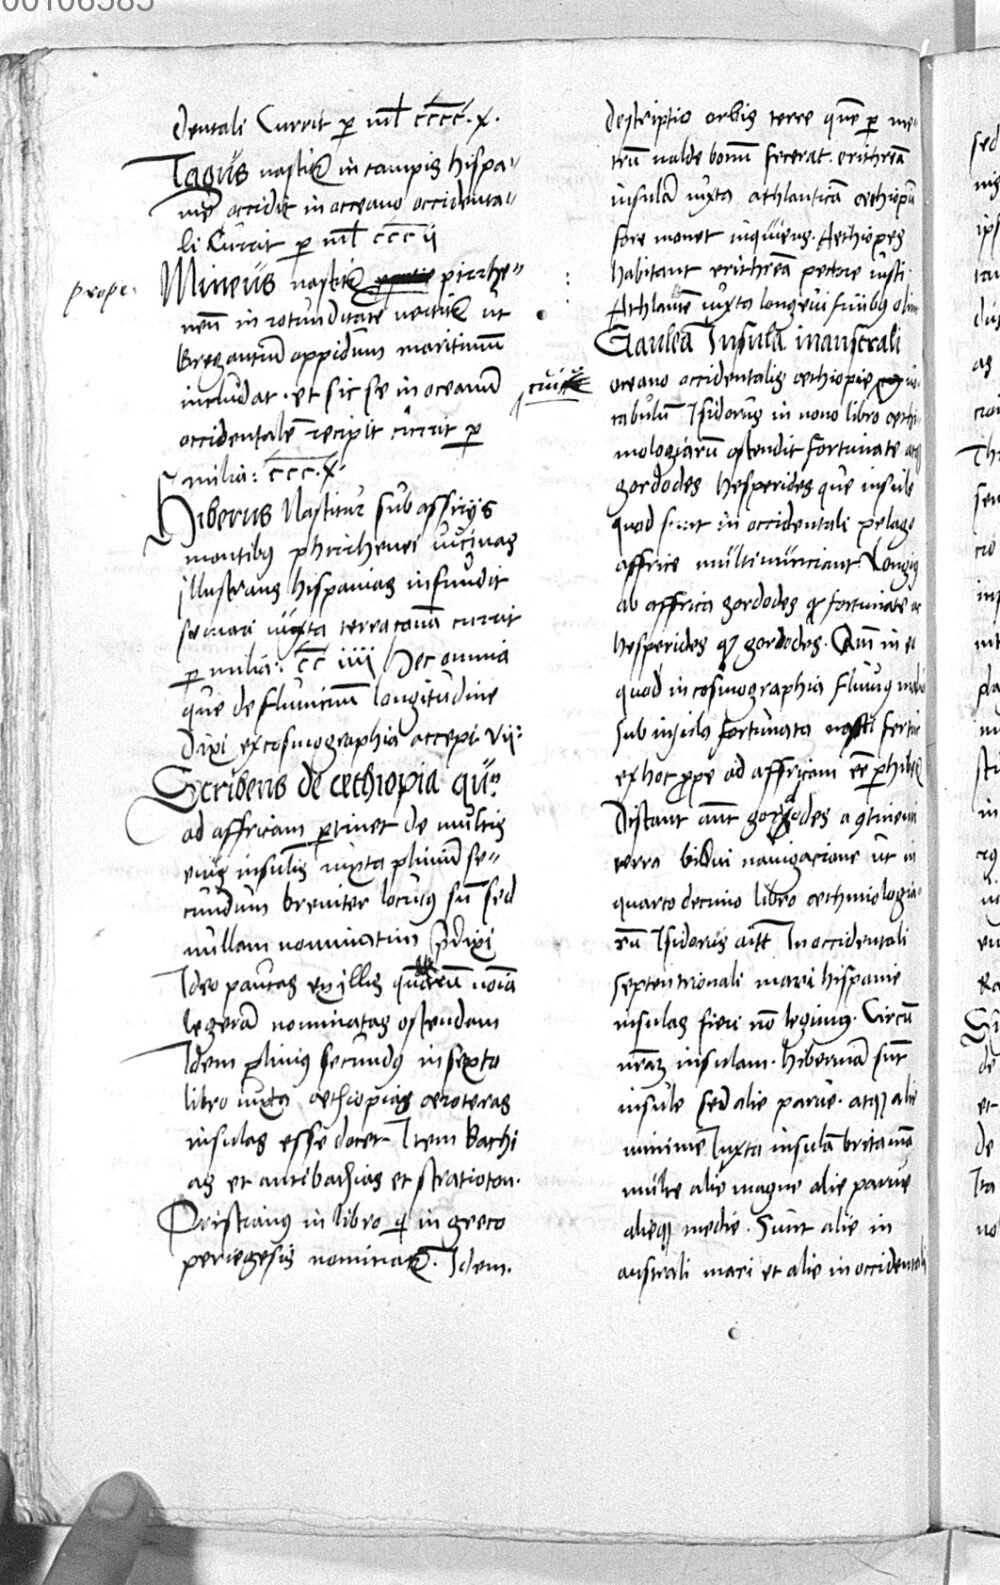 00106585
dentali Currit ꝑ mł cccc.x.
Tagus nascit~ in campis hispa-
nie occidit in occeano occidenta-
li Currit ꝑ mł ccc ij
prope. Mineus nascit~ pirrhe-
neū in rotunditatē vertit~ ut
Bregantiū oppidum maritimum
includat. et sic se in oceanū
occidentalē recipit currit ꝑ
milia: ccc.x.
Hiberus Nascitur sub assirijs
montibus phirrhenei vicinas
illustrans hispanias infundit
se mari iuxta terraconā currit
ꝑ milia: cc iiii Hec omnia
que de fluminum longitudine
dixi ex cosmographia accepi vij:
Scribens de cethiopia que
ad affricam ꝑtinet de multis
eius insulis iuxta plinium se-
cundum breviter locutus sū sed
nullam nominatim p̄dixi
Ideo paucas ex illis quarum noīa
legerā nominatas ostendam
Idem plinius secundus in sexto
libro iuxta cethiopias ceroteras
insulas esse docet Item Bachi
as et antibachias et stratioton.
Priscianus in libro q in greco
periegesis nominat~. Idem.
descriptio orbis terre quē ꝑ me-
trū valde bonū fecerat. erithreā
insulā iuxta athlanticā cethiopū
fore monet inquiens. Aethiopes
habitant erithreā pectore iusti.
Athlantē iuxta longevi finibus olim
Gauleā Insulā in australi
oceano occidentalis cethiopie
tabulum Isidorus in nono libro cethi
mologiarū ostendit fortunate atq
gordodes hesperides que insule
quod sunt in occidentali pelago
affrice multi nunciant Longius
ab affrica gordodes q̄ fortunate ac
hesperides q̄ gordodes. Am in eo
quod in cosmographia fluvius malua
sub insula fortunata nasci fertur
ex hoc prope ad affricam eē ꝑhibet~
Distant aūt gorgodes a ꝯtinenti
terra bidui navigacione ut in
quarto decimo libro cethimologia-
rū Isidorus ait In occidentali
septentrionali mari hispanie
insulas fieri nō legimus. Circum
nrām insulam. hiberniā sunt
insule sed alie parve. atq alie
minime Iuxta insulā britaniā
multe alie magne alie parve
alieq medie. Sunt alie in
australi mari et alie in occidentali